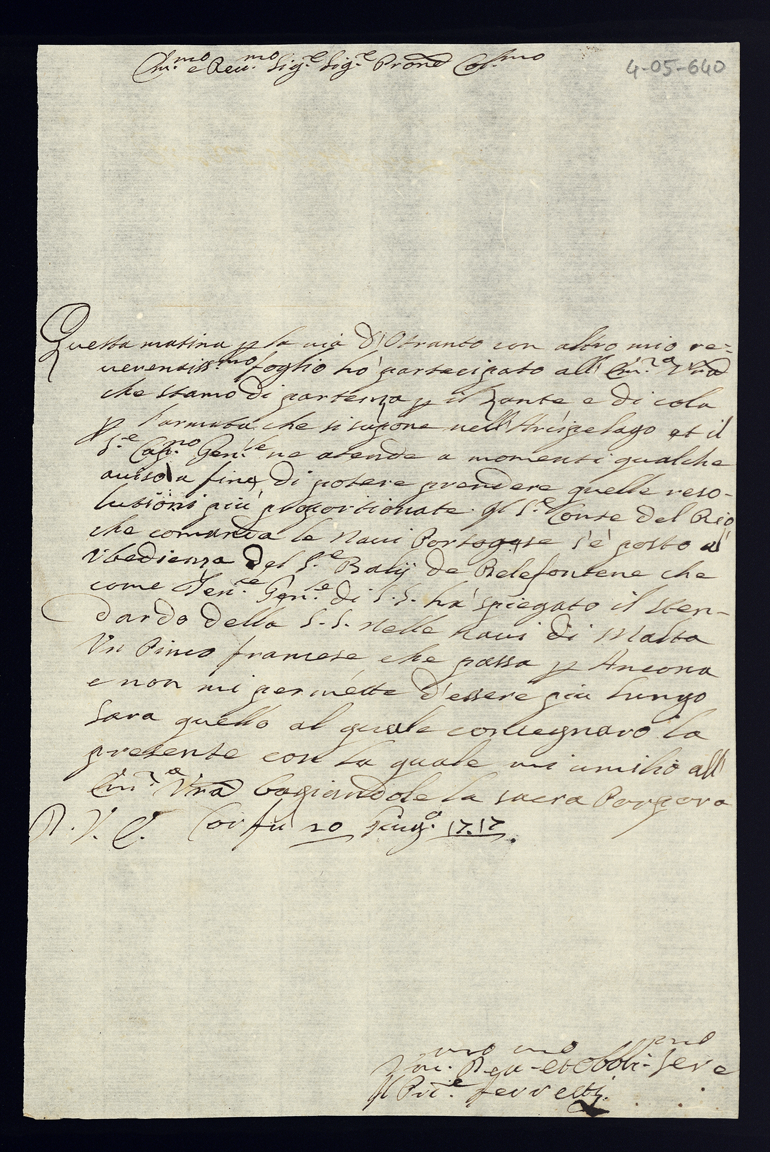 Em.mo e Reu.mo Sig.e Sig.e Prone Col.mo
4-05-640
Questa matina p la uia d'Otranto con altro mio re=
uerentiss.mo foglio ho' partecipato all' Em.za Vra
che stamo di partenza p il Zante e di cola
p l'armata che si supone nell'Arcipelago et il
S.e Cap.no Gen.le ne atende a momenti qualche
auiso a fine di potere prendere quelle reso-
lutioni più proporitionate. Il S.e Conte del Rio
che comanda le Naui Portogese s'è posto al'
Vbedienza del S.e Balij de Belefontene che
come Ten.te Gen.le di S.S. ha' spiegato il sten-
dardo della S.S. nelle naui di Malta
Vn Pinco francese che passa p Ancona
e non mi permette d'essere più lungo
sara quello al quale consegnarò la
presente con la quale mi umilio all'
Em.za Vra bagiandole la sacra Porpora
D. V. E. Corfu 20 Giug.o 1717.
Um.mo Deu.mo et Obbli. Sere
Il Pri.e ferretti